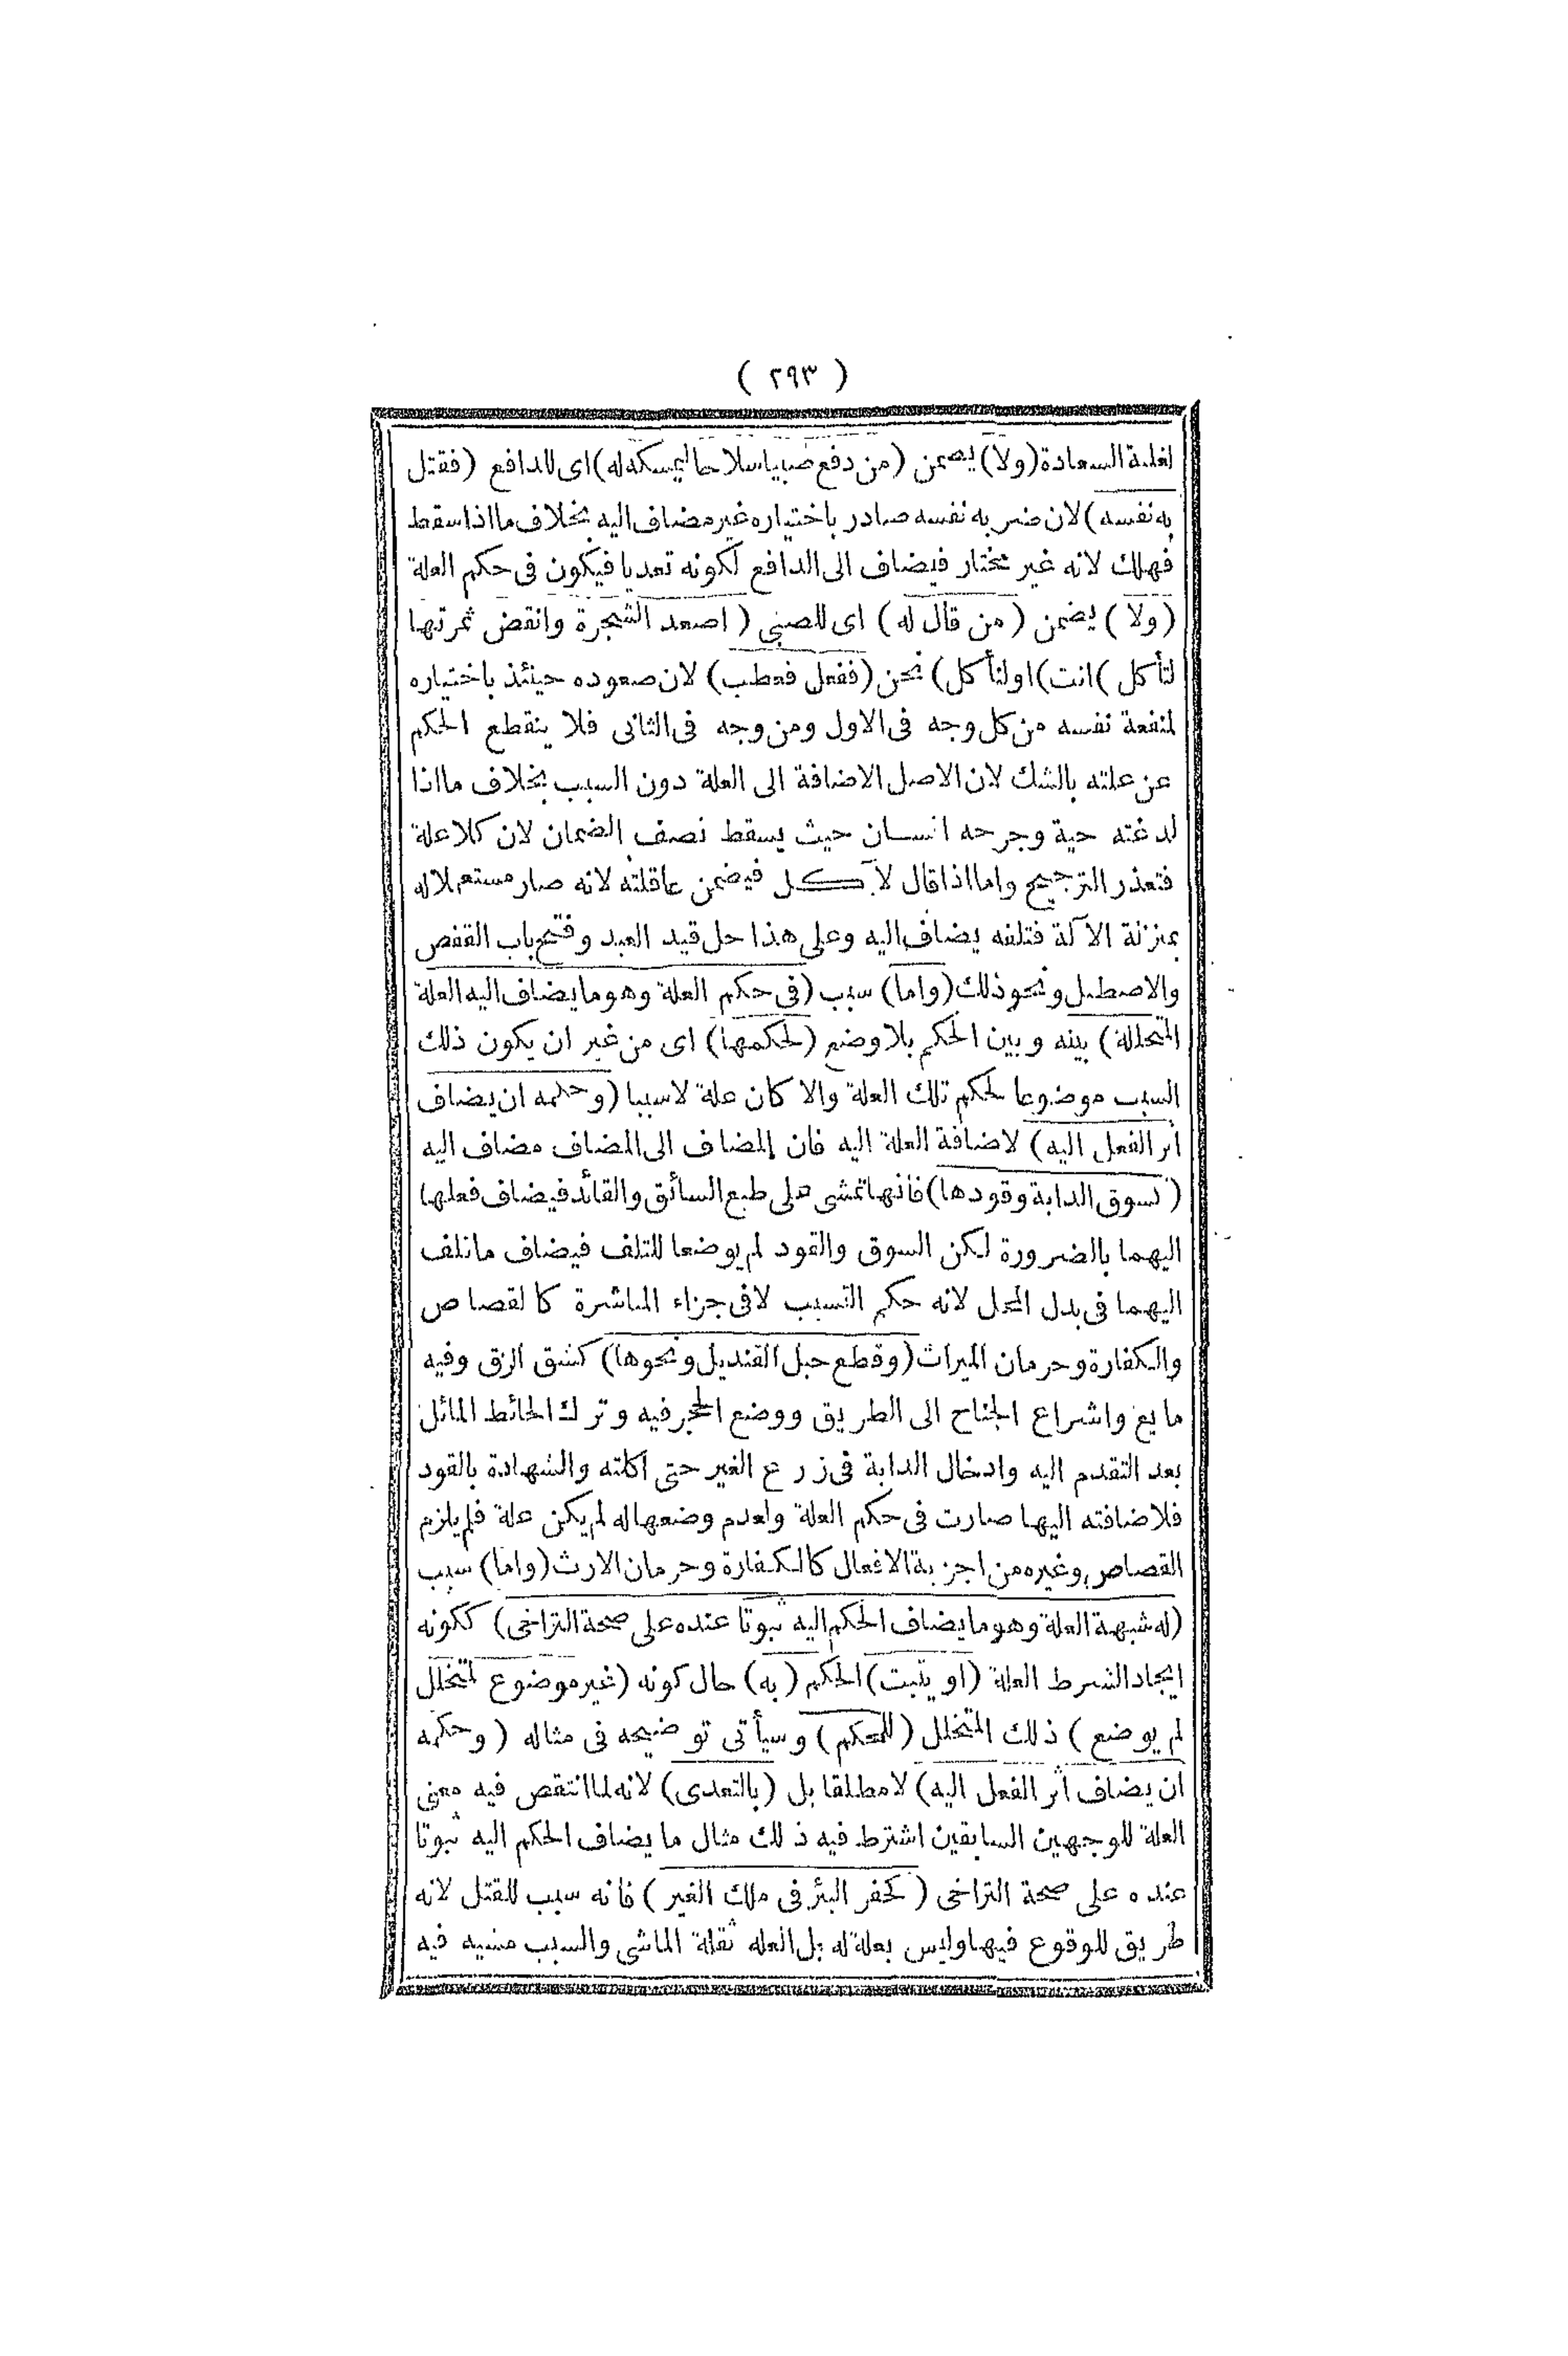 ( ٢٩٣ )
لغلبة السعادة (ولا) يضمن (من دفع صبيا سلاحا ليمسكه له) اى للدافع (فقتل
به نفسه) لان ضربه نفسه صادر باختياره غير مضاف اليه بخلاف ما اذا سقط
فهلك لانه غير مختار فيضاف الى الدافع لكونه تعديا فيكون فى حكم العلة
(ولا) يضمن (من قال له) اى للصبى (اصعد الشجرة وانقض ثمرتها
لتأكل) انت) اولنأكل) نحن (ففعل فعطب) لان صعوده حينئذ باختياره
لمنفعة نفسه من كل وجه فى الاول ومن وجه فى الثانى فلا ينقطع الحكم
عن علته بالشك لان الاصل الاضافة الى العلة دون السبب بخلاف ما اذا
لدغته حية وجرحه انسان حيث يسقط نصف الضمان لان كلا علة
فتعذر الترجيح واما اذا قال لآكل فيضمن عاقلته لانه صار مستعملا له
بمنزلة الآلة فتلفه يضاف اليه وعلى هذا حل قيد العبد وفتح باب القفص
والاصطبل ونحو ذلك (واما) سبب (فى حكم العلة وهو ما يضاف اليه العلة
المتخللة) بينه وبين الحكم بلا وضع (لحكمها) اى من غير ان يكون ذلك
السبب موضوعا لحكم تلك العلة والا كان علة لا سببا (وحكمه ان يضاف
اثر الفعل اليه) لاضافة العلة اليه فان المضاف الى المضاف مضاف اليه
(كسوق الدابة وقودها) فانها تمشى على طبع السائق والقائد فيضاف فعلها
اليهما بالضرورة لكن السوق والقود لم يوضعا للتلف فيضاف ما تلف
اليهما فى بدل المحل لانه حكم التسبب لا فى جزاء المباشرة كالقصاص
والكفارة وحرمان الميراث (وقطع حبل القنديل ونحوها) كشق الزق وفيه
مايع واشراع الجناح الى الطريق ووضع الحجر فيه وترك الحائط المائل
بعد التقدم اليه وادخال الدابة فى زرع الغير حتى اكلته والشهادة بالقود
فلاضافته اليها صارت فى حكم العلة ولعدم وضعها له لم يكن علة فلم يلزم
القصاص وغيره من اجزية الافعال كالكفارة وحرمان الارث (واما) سبب
(له شبهة العلة وهو ما يضاف الحكم اليه ثبوتا عنده على صحة التراخى) ككونه
ايجاد الشرط العلة (او يثبت) الحكم (به) حال كونه (غير موضوع لمتخلل
لم يوضع) ذلك المتخلل (للحكم) وسيأتى توضيحه فى مثاله (وحكمه
ان يضاف اثر الفعل اليه) لا مطلقا بل (بالتعدى) لانه لما انتقص فيه معنى
العلة للوجهين السابقين اشترط فيه ذلك مثال ما يضاف الحكم اليه ثبوتا
عنده على صحة التراخى (كحفر البئر فى ملك الغير) فانه سبب للقتل لانه
طريق للوقوع فيها وليس بعلة له بل العله ثقلة الماشى والسبب مشيه فيه